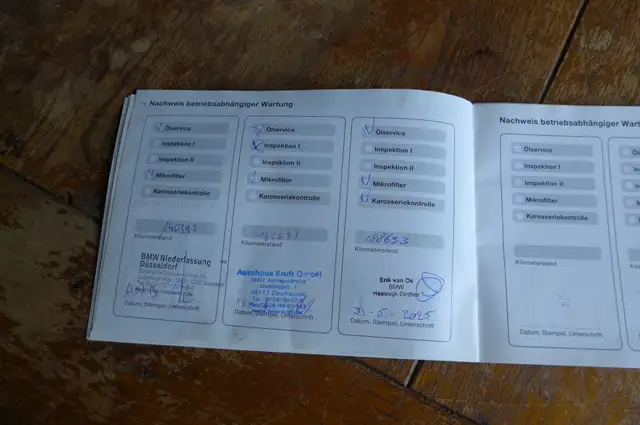 Nachweis betriebsabhängiger Wartung
Ölservice
Inspektion I
Inspektion II
Mikrofilter
Karosseriekontrolle
Kilometerstand
BMW Niederlassung
Düsseldorf
Datum, Stempel, Unterschrift
Ölservice
Inspektion I
Inspektion II
Mikrofilter
Karosseriekontrolle
Kilometerstand
Autohaus Kruft GmbH
BMW Vertragshändler
Datum, Stempel, Unterschrift
Ölservice
Inspektion I
Inspektion II
Mikrofilter
Karosseriekontrolle
188653
Kilometerstand
Erik van Os
BMW
Heeswijk-Dinther
31-5-2025
Datum, Stempel, Unterschrift
Nachweis betriebsabhängiger Wart
Ölservice
Inspektion I
Inspektion II
Mikrofilter
Karosseriekontrolle
Kilometerstand
Datum, Stempel, Unterschrift